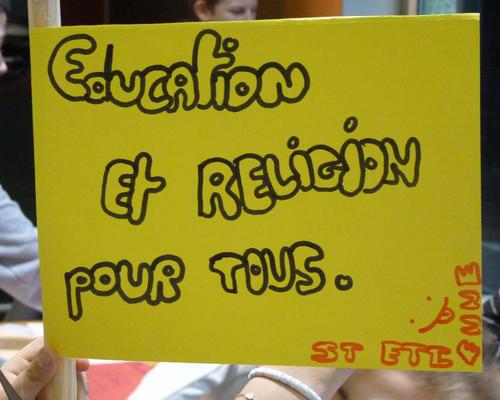 Education
Et RELIGION
POUR TOUS.
ST ETI♥NNE